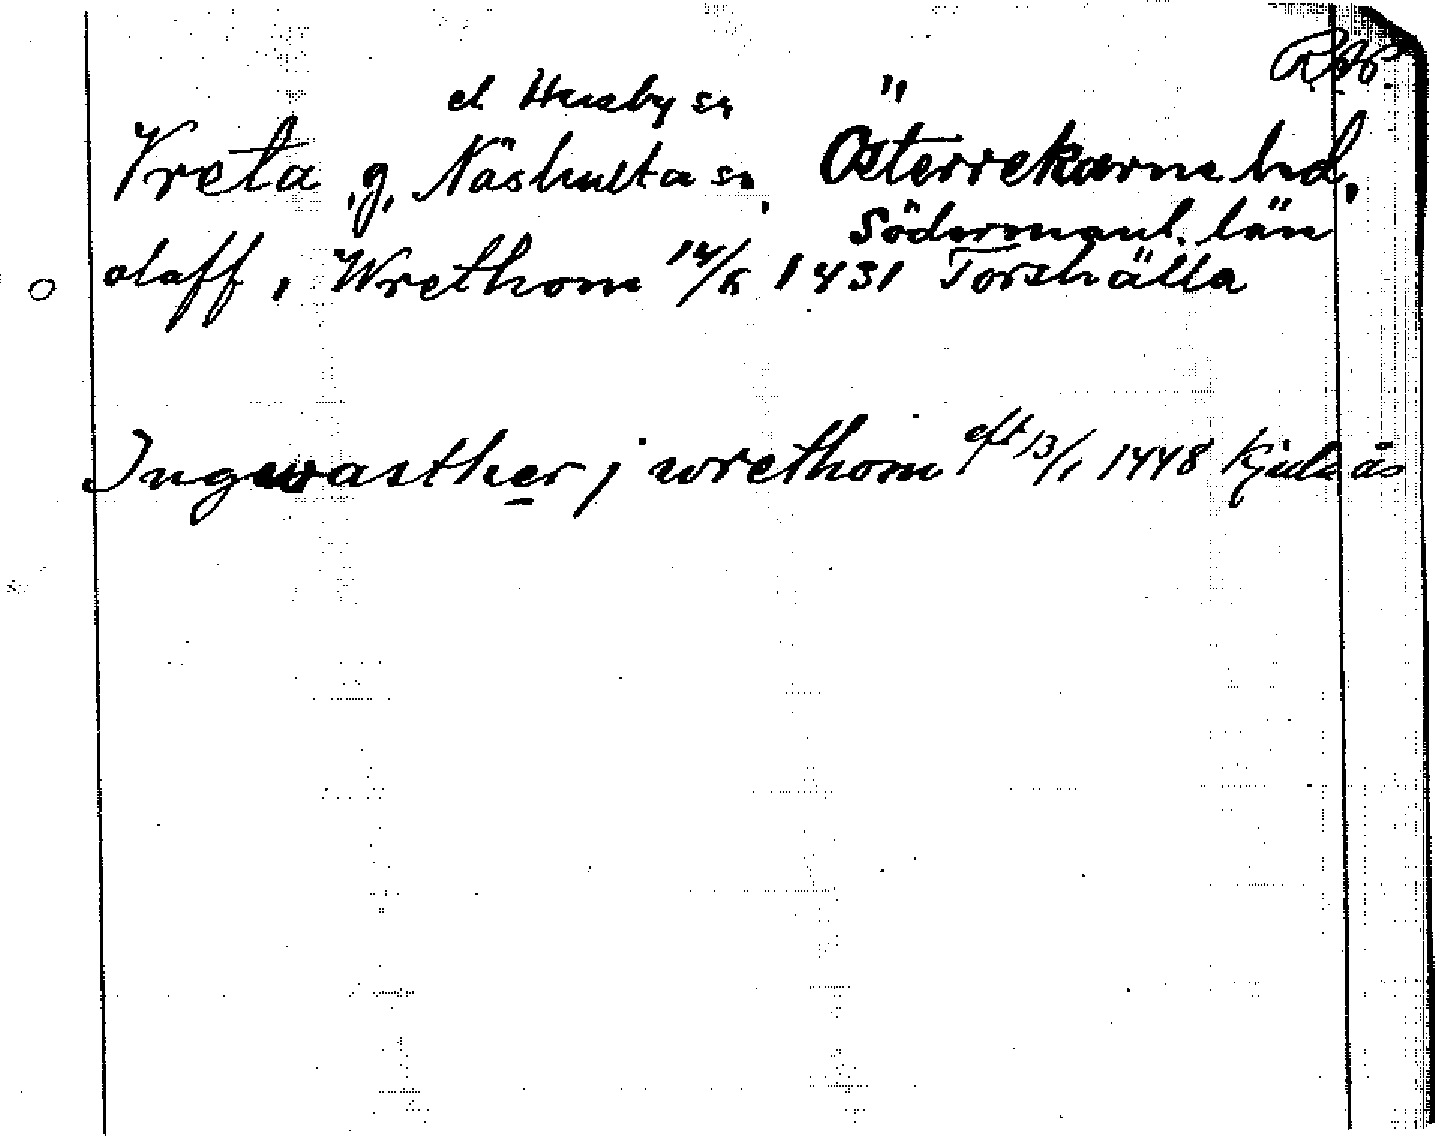 el Husby sn "
Vreta, g, Näshulta sn, Österrekarne hd,
Södermanl. län
olaff i Wrethom 14/5 1431 Torshälla
Ingewasther j wrethom eft 13/1 1448